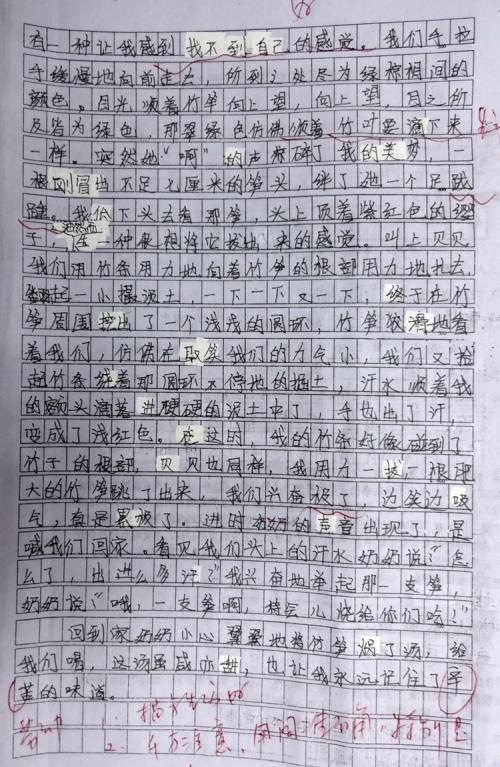 有一种让我感到找不到自己的感觉。我们手拉
手缓慢地向前走去，所到之处尽为绿棕相间的
颜色。目光顺着竹竿向上望，向上望，目之所
及皆为绿色，那翠绿色仿佛顺着竹叶要滴下来
一样。突然她“啊”的一声打碎了我的美梦，一
根刚冒出不足七厘米的笋头，绊了她一个足跋
踵。我低下头去看那笋，头上顶着紫红色的缨
子，一种很想将它拔出来的感觉。叫上贝贝
我们用竹条用力地向着竹笋的根部用力地扎去，
起一小撮泥土，一下一下又一下，终于在竹
笋周围挖出了一个浅浅的圆环，竹笋狡滑地看
着我们，仿佛在取笑我们的力气小，我们又抬
起竹条绕着那圆环不停地的掘土，汗水顺着我
的额头滴落进硬硬的泥土中了，手也出了汗，
变成了浅红色。在这时，我的竹条好像碰到了
竹子的根部，贝贝也同样，我用力一拔，一根肥
大的竹笋跳了出来，我们兴奋极了，边笑边吸
气，真是累极了。进时奶奶的声音出现了，是
喊我们回家。看见我们头上的汗水奶奶说：“怎
么了，出进么多汗？”我兴奋地举起那一支笋，
奶奶说：“哦，一支笋啊，待会儿烧给你们吃！”
回到家奶奶小心翼翼地将竹笋焖了汤，给
我们喝，这汤虽咸亦甜，也让我永远记住了辛
苦的味道。